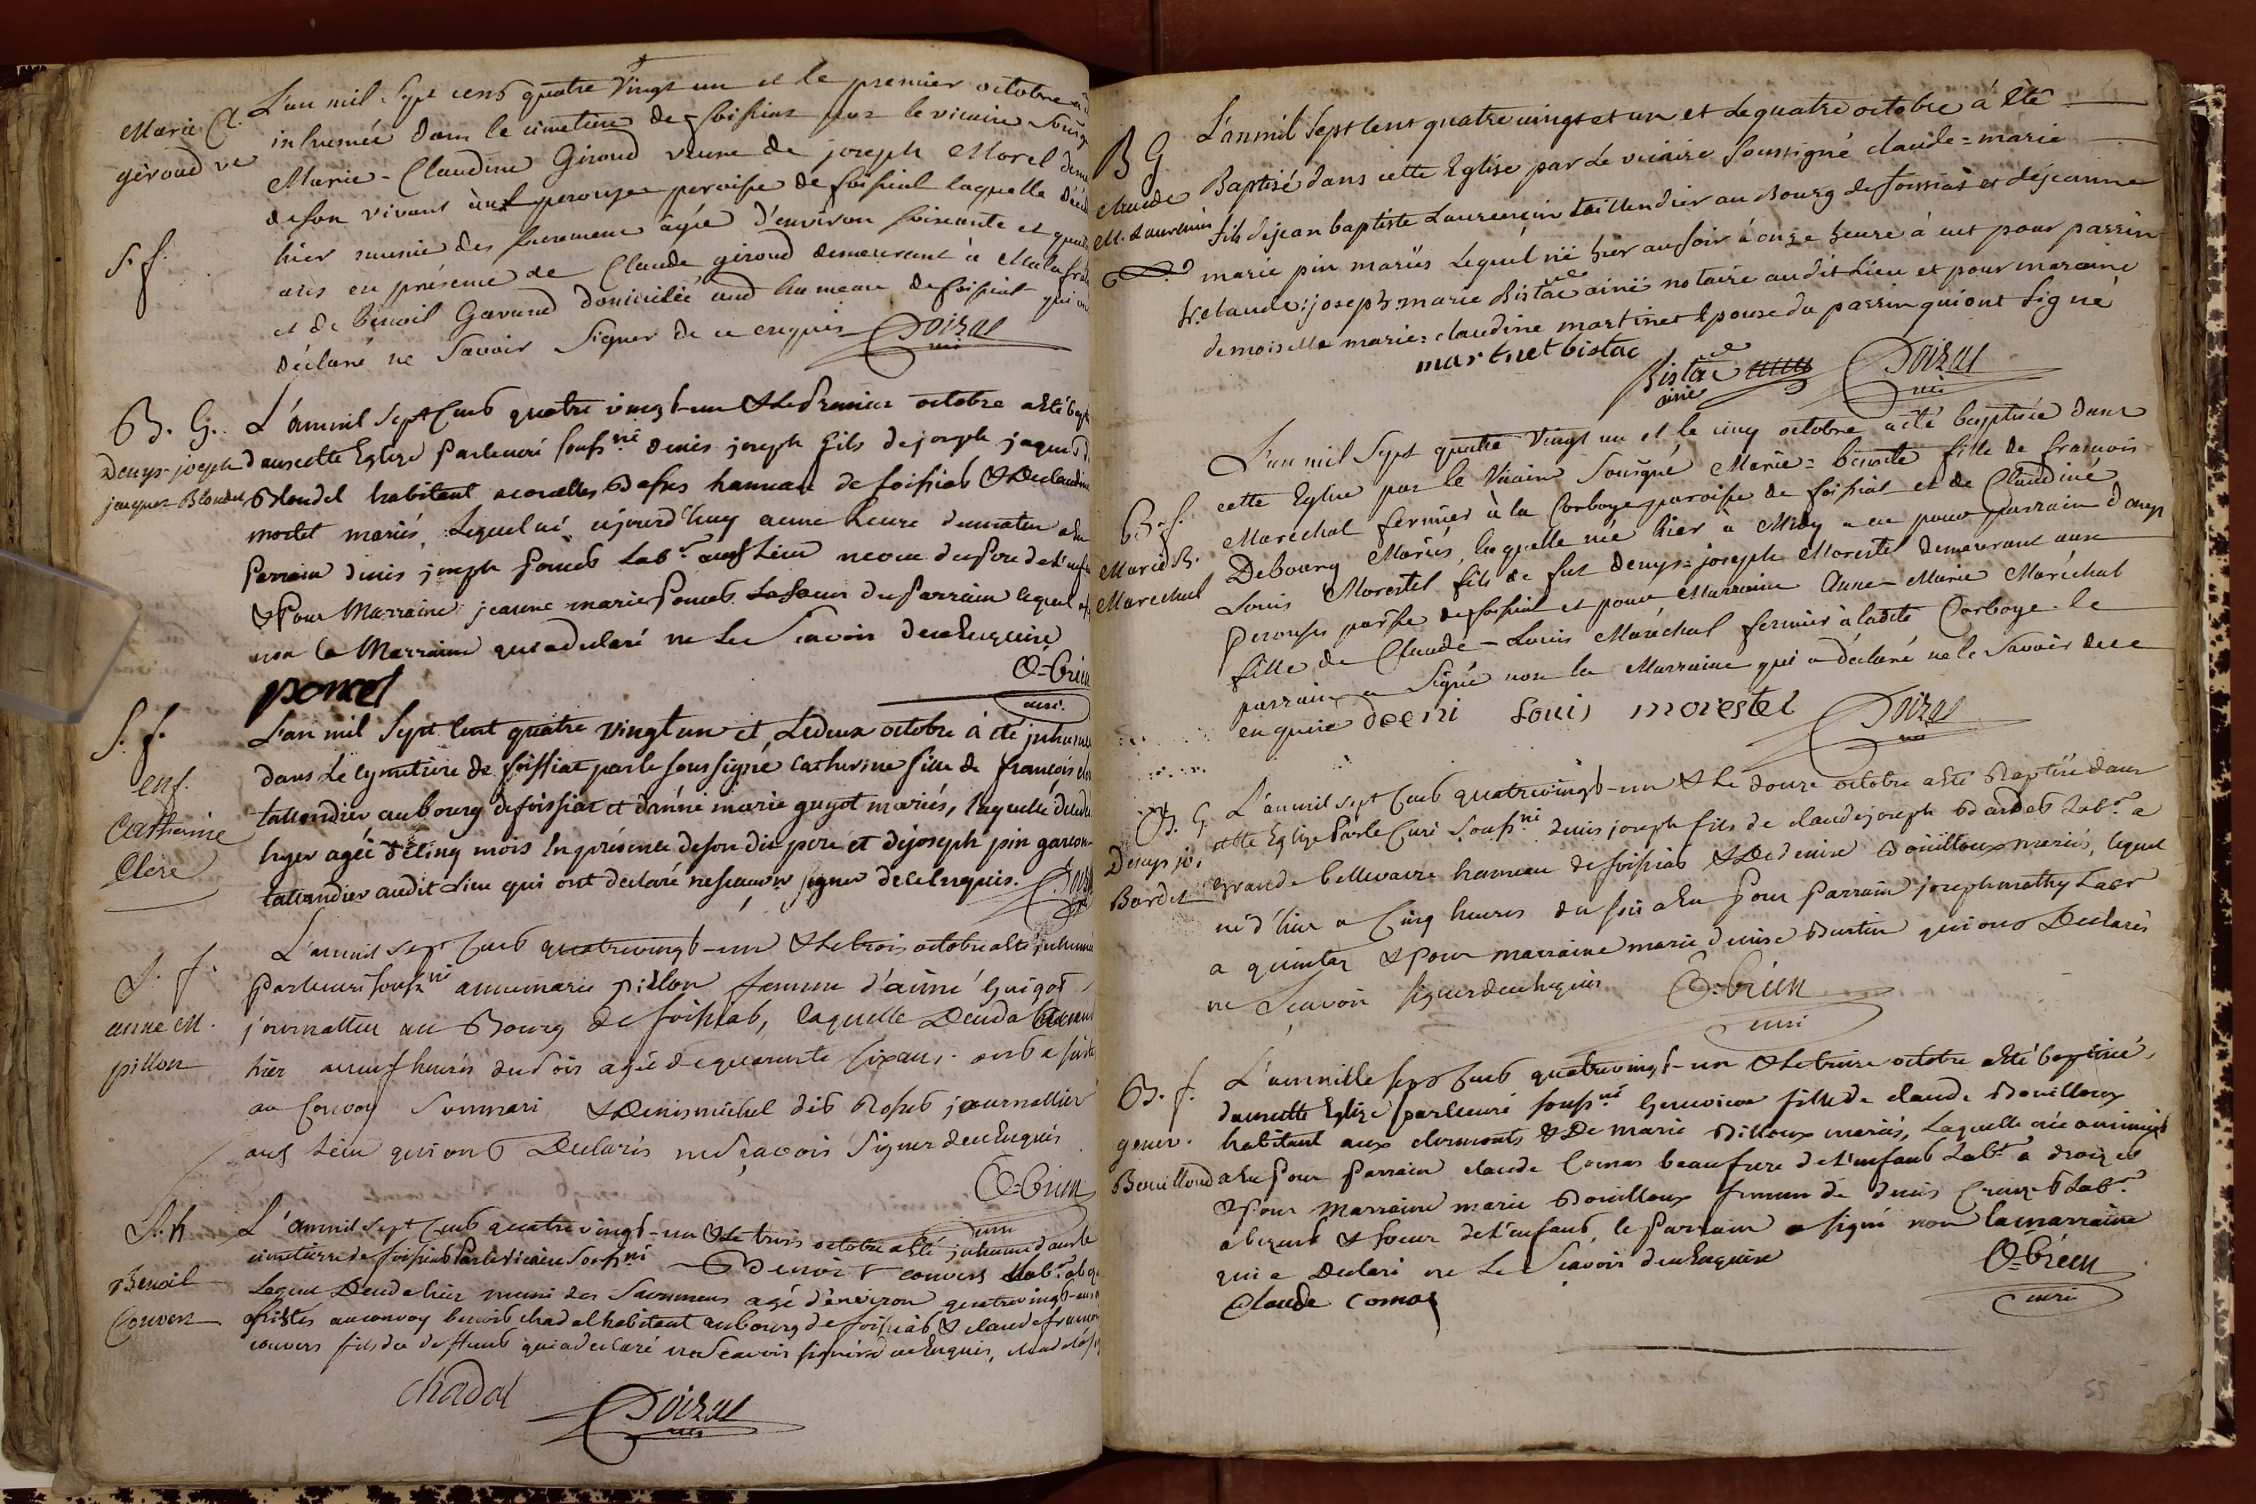 Marie Cl.
giroud ve
S. f.
L'an mil sept cens quatre vingt un et le premier octobre a
inhumée dans le cimetiere de foissiat par le vicaire sousig
Marie-Claudine Giroud veuve de joseph Morel
de son vivant aux perouse paroisse de foissiat laquelle
hier munie des sacremens âgée d'environ soixante et
ans en présence de Claude giroud demeurant à
et de benoit Gavand domicilié aud hameau de foissiat qui
déclaré ne savoir signer de ce enquis Doizat
vic
B. G.
Denys-joseph
jacquet Blondel
L'an mil sept Cens quatre vingt-un & le Premier octobre a eté
dans cette Eglize Par le curé souss.né denis joseph fils de joseph
Blondel habitant hameau de foissiat & de claudine
mortet mariés, Lequel né ajourd'huy a une heure du matin a eu
Parrain denis joseph Poncet Lab.r aud Lieu
& Pour Marraine jeanne marie Poncet La soeur du Parrain lequel
non la Marraine qui a declaré ne Le Scavoir de ce Enquise
poncet
O-brien
curé
S. f.
enf.
Catherine
Clere
L'an mil sept Cent quatre vingt un et le deux octobre à été
dans Le cymetiere de foissiat par le sous signé Catherine fille de francois
taliandier au bourg de foissiat et d'anne marie guyot mariés, laquelle
hyer agée de cinq mois En présence de son dit pere et de joseph pin garcon
taliandier audit Lieu qui ont declaré ne scavoir signer de ce Enquis.
S. f.
anne M.
pillon
L'an mil sept Cens quatre vingt-un & le trois octobre a eté inhumé
Par le curé souss.né anne marie pillon femme d'aimé Guigot
journallier au Bourg de foissiat, laquelle Decedá
hier a neuf heures du soir agée de quarante six ans. ont
au Convoy son mari & Denis michel dit Rosset journallier
aud Lieu qui ont Declarés ne Sçavoir Signer de ce Enquis
O-brien
curé
S. h
Benoit
Convers
L'an mil sept Cens quatre vingt-un & Le trois octobre a eté inhumé dans le
cimetierre de foissiat Par le vicaire Souss.né Benoit convers Lab.r
Lequel Decede hier muni des Sacremens agé d'environ quatre vingt-ans
assistés au convoy benoit chadal habitant au bourg de foissiat & claude
convers fils du deffunt qui a declaré ne Scavoir signer de ce Enquis,
chadal
Doizat
vic
B G
claude
M. Laurencin
L'an mil sept cent quatre vingt et un et le quatre octobre á été
Baptisé dans cette Eglise par Le vicaire Soussigné claude=marie
fils de jean baptiste Laurençin taillendier au Bourg de foissiat et de jeanne
marie pin mariés Lequel né hier au soir á onze heure á eut pour parrin
Sr. claude: joseph marie Bistac ainé notaire audit Lieu et pour maraine
demoiselle marie=claudine martinet Epouse du parrin qui ont signé
martnet bistac
Bistac
ainé
Doizat
vic
B. f.
Marie B.
Marechal
L'an mil sept quatre vingt un et le cinq octobre a été baptisée dans
cette Eglise par le Vicaire Sousigné Marie=benoite fille de francois
Maréchal fermier à la Corboye paroisse de foissiat et de Claudine
Debourg Mariés, laquelle née hier à Midy a eu pour parrain denys
Louis Morestel fils de fut denys=joseph Morestel demeurant aux
Perouses par.sse de foissiat et pour Marraine Anne-Marie Maréchal
fille de Claude-Louis Maréchal fermier à ladite Corboye. le
parrain a signé non la Marraine qui a déclaré ne le savoir de ce
enquise deeni Louis morestel Doizat
vic
B. G.
Denys jo.
Bardet
L'an mil sept Cens quatre vingt-un & Le douze octobre a eté Baptisé dans
cette Eglize Par le Curé Souss.né denis joseph fils de claude joseph Bardet Lab.r a
grande bellevavre hameau de foissiat & De denise Bouilloux mariés, lequel
né d'hier a Cinq heures du soir a Eu Pour Parrain joseph mathy Lab.r
a quintaz & Pour marraine marie denise Burtin qui ont Declarés
ne Scavoir signer de ce Enquis O-brien
curé
B. f.
genev.
Bouilloud
L'an mille sept Cens quatre vingt-un & le treize octobre a eté baptisée
dans cette Eglize par le curé souss.né Genevieve fille de claude Bouilloux
habitant aux clermonts & De marie Billoux mariés, Laquelle née a minuit
a Eu Pour Parrain claude Comas beaufrere de l'enfant Lab.r
& Pour Marraine marie Bouilloux femme de denis Lab.r
& soeur de l'enfant, le Parrain a signé non la marraine
qui a Declaré ne Le Scavoir de ce Enquise O-brien
curé
Claude comas
55